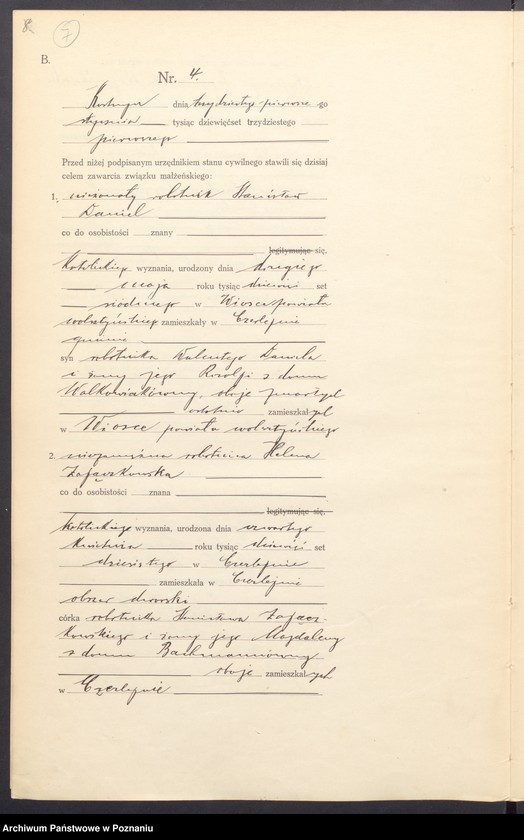 8.
7
B.
Nr. 4.
dnia trzydziestego pierwszego
stycznia tysiąc dziewięćset trzydziestego
pierwszego
Przed niżej podpisanym urzędnikiem stanu cywilnego stawili się dzisiaj
celem zawarcia związku małżeńskiego:
1. nieżonaty robotnik Stanisław
Daniel
co do osobistości znany
legitymując się,
katolickiego wyznania, urodzony dnia drugiego
maja roku tysiąc dziewięć set
siódmego w Wiosce powiatu
wolsztyńskiego zamieszkały w Czerlejnie
gminie
syn robotnika Walentego Daniela
i żony jego Rozalji z domu
Walkowiakówny, oboje zmarłych
ostatnio zamieszkałych
w Wiosce powiatu wolsztyńskiego
2. niezamężna robotnica Helena
Zajączkowska
co do osobistości znana
legitymując się,
katolickiego wyznania, urodzona dnia czwartego
kwietnia roku tysiąc dziewięć set
dziesiątego w Czerlejnie
zamieszkała w Czerlejnie
obszar dworski
córka robotnika Stanisława Zającz-
kowskiego i żony jego Magdaleny
z domu
oboje zamieszkałych
w Czerlejnie
Archiwum Państwowe w Poznaniu